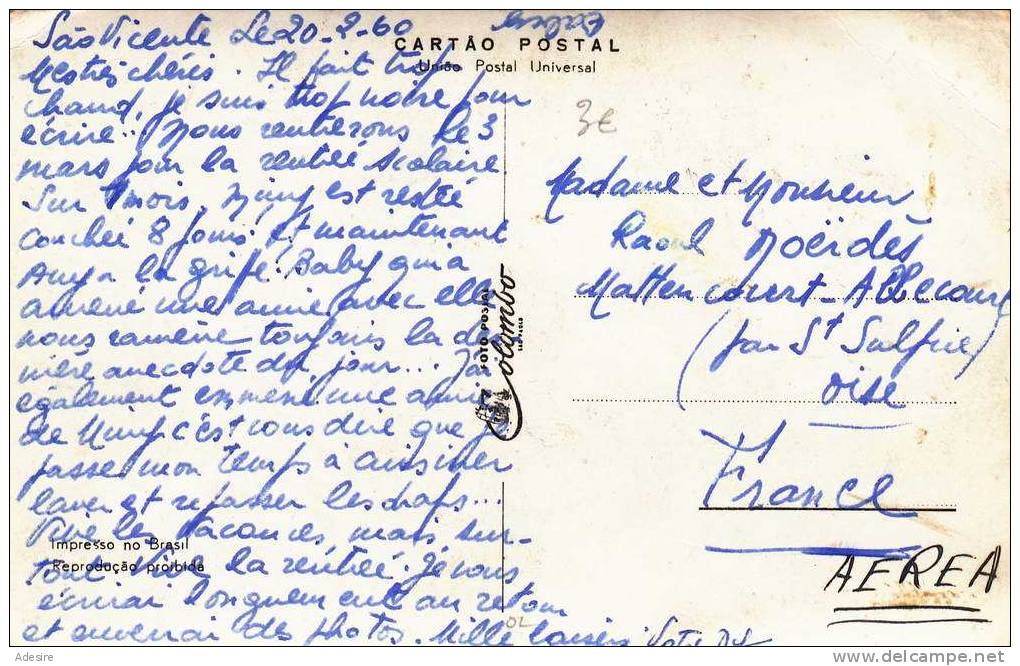 São Vicente Le 20-2-60
CARTÃO POSTAL
União Postal Universal
Mes très chéris. Il fait trop
chaud, je suis trop noire pour
écrire.. Nous rentrerons le 3
mars pour la rentrée scolaire
Sur 1 mois, Mimy est restée
couchée 8 jours et maintenant
Any a la grippe. Baby qui a
amené une amie avec elle
nous ramène toujours la der
nière anecdote du jour... J'ai
également emmené une amie
de Mimy c'est vous dire que je
passe mon temps à cuisiner
laver et repasser les draps...
Vive les vacances, mais sur-
tout vive la rentrée. Je vous
écrirai longuement au retour
et enverrai des photos. Mille baisers Votre
Impresso no Brasil
Reprodução proibida
FOTO POSTAL
Colombo
SÃO PAULO
3€
Madame et Monsieur
Raoul Noërdès
Mattencourt - Abbecourt
(par St Sulpice)
Oise
France
AEREA
Adesire
delcampe.net